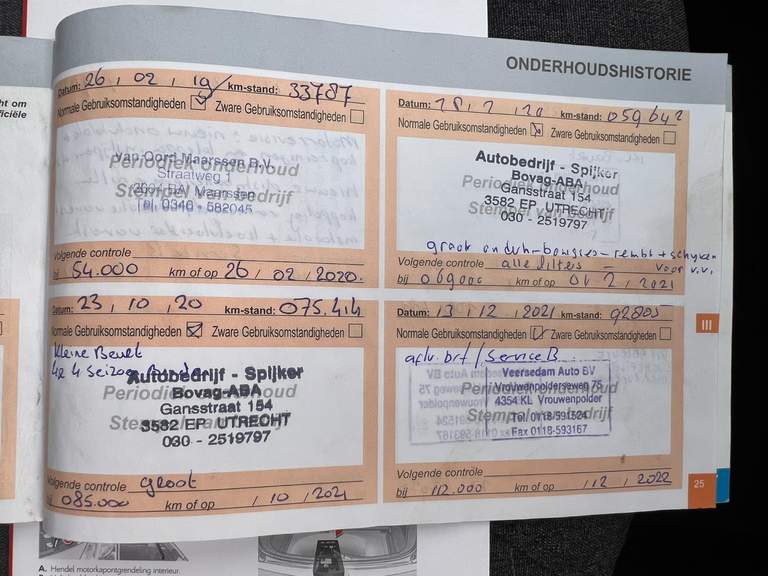 ht om
ficiële
ONDERHOUDSHISTORIE
Datum: 26 , 02 , 19 km-stand: 33787
Normale Gebruiksomstandigheden Zware Gebruiksomstandigheden
Periodiek onderhoud
Stempel van bedrijf
Van Oord Maarssen B.V.
Straatweg 1
Maarssen
Tel. 0346 - 582045
Volgende controle
bij 54.000 km of op 26 / 02 / 2020.
Datum: km-stand: 059642
Normale Gebruiksomstandigheden Zware Gebruiksomstandigheden
Periodiek onderhoud
Stempel van bedrijf
Autobedrijf - Spijker
Bovag-ABA
Gansstraat 154
3582 EP UTRECHT
030 - 2519797
groot onderh - bougies - rembl + schijven
Volgende controle alle filters - voor v.v.
bij 069000 km of op 01 / 2 / 2021
Datum: 23 , 10 , 20 km-stand: 075.414
Normale Gebruiksomstandigheden Zware Gebruiksomstandigheden
Kleine Beurt
4x 4 Seizoen Banden
Periodiek onderhoud
Stempel van bedrijf
Autobedrijf - Spijker
Bovag-ABA
Gansstraat 154
3582 EP UTRECHT
030 - 2519797
Volgende controle groot
bij 085.000 km of op / 10 / 2021
Datum: 13 / 12 / 2021 km-stand: 92805
Normale Gebruiksomstandigheden Zware Gebruiksomstandigheden
aflv. brt / Service B
Periodiek onderhoud
Stempel van bedrijf
Veersedam Auto BV
Vrouwenpolderseweg 75
4354 KL Vrouwenpolder
Tel. 0118-591524
Fax 0118-593167
Volgende controle
bij 112.000 km of op / 12 / 2022
III
25
A. Hendel motorkapontgrendeling interieur.